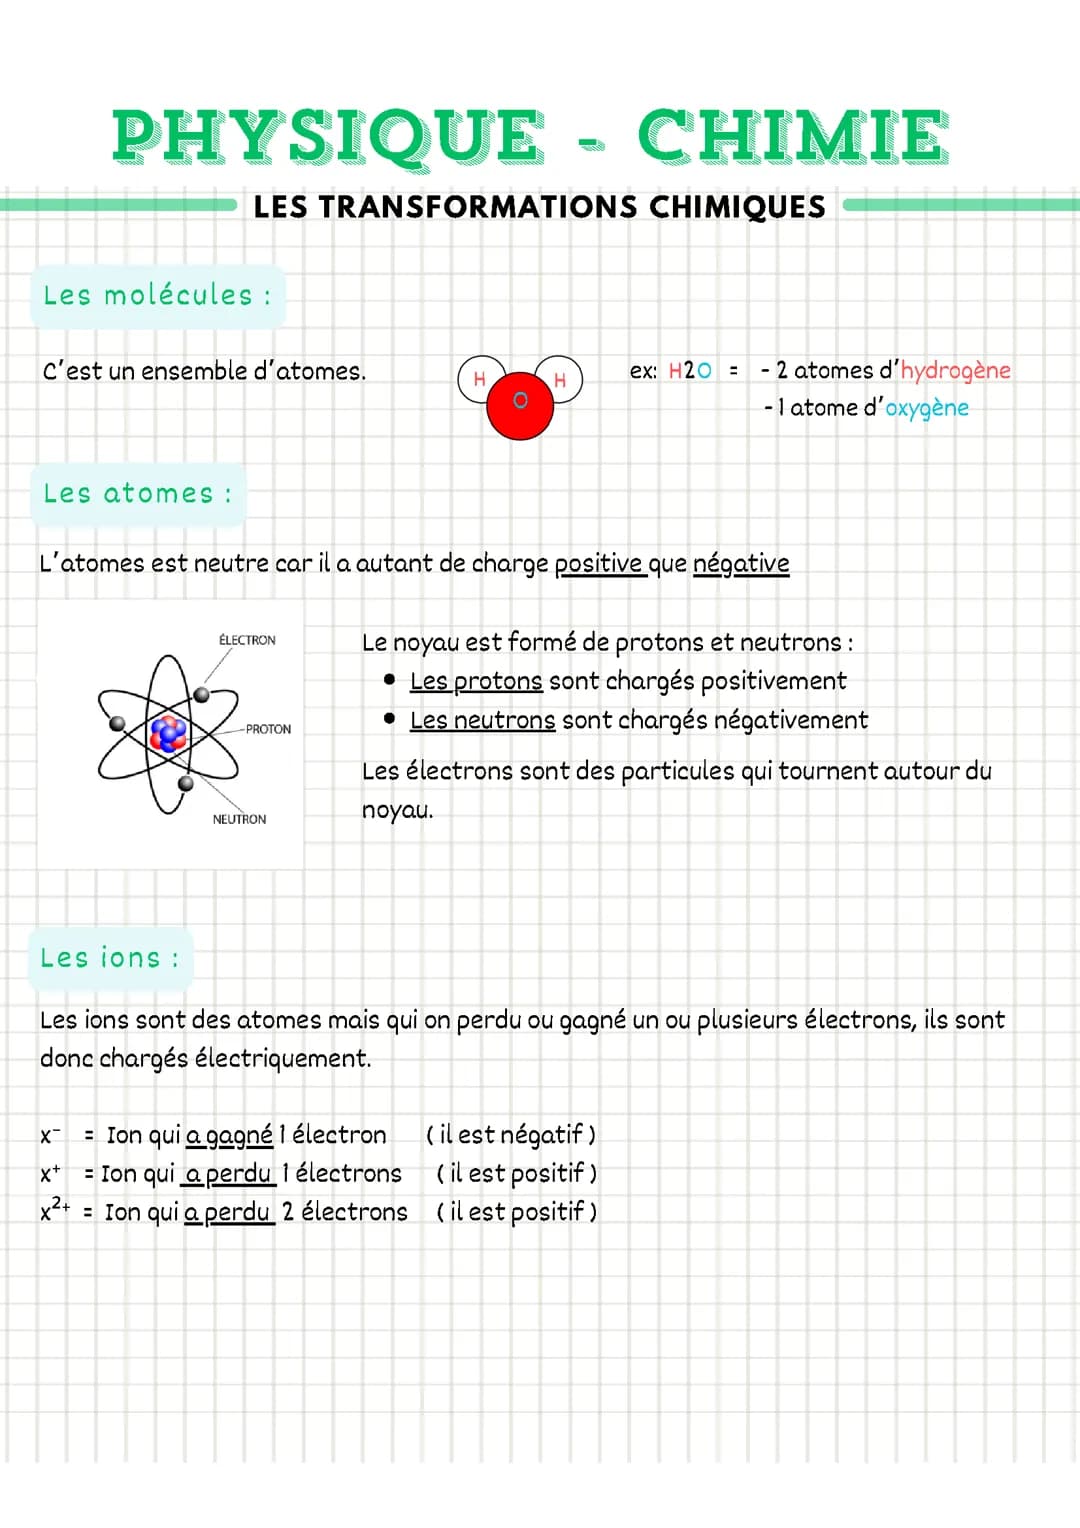 PHYSIQUE - CHIMIE
LES TRANSFORMATIONS CHIMIQUES
Les molécules :
C'est un ensemble d'atomes.
H
H
O
ex: H2O = - 2 atomes d'hydrogène
- 1 atome d'oxygène
Les atomes :
L'atomes est neutre car il a autant de charge positive que négative
ÉLECTRON
PROTON
NEUTRON
Le noyau est formé de protons et neutrons :
• Les protons sont chargés positivement
• Les neutrons sont chargés négativement
Les électrons sont des particules qui tournent autour du
noyau.
Les ions :
Les ions sont des atomes mais qui on perdu ou gagné un ou plusieurs électrons, ils sont
donc chargés électriquement.
x⁻ = Ion qui a gagné 1 électron ( il est négatif )
x⁺ = Ion qui a perdu 1 électrons ( il est positif )
x²⁺ = Ion qui a perdu 2 électrons ( il est positif )